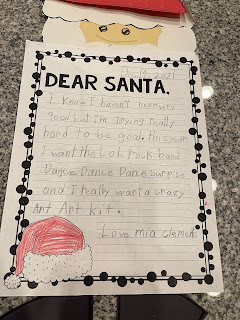 2021
DEAR SANTA,
I know I haven't been very
good but I'm trying really
hard to be good. This year
I want the LOL rock band
Dance Dance Dance surprise
and I really want a crazy
Ant Art kit.
Love mia clement